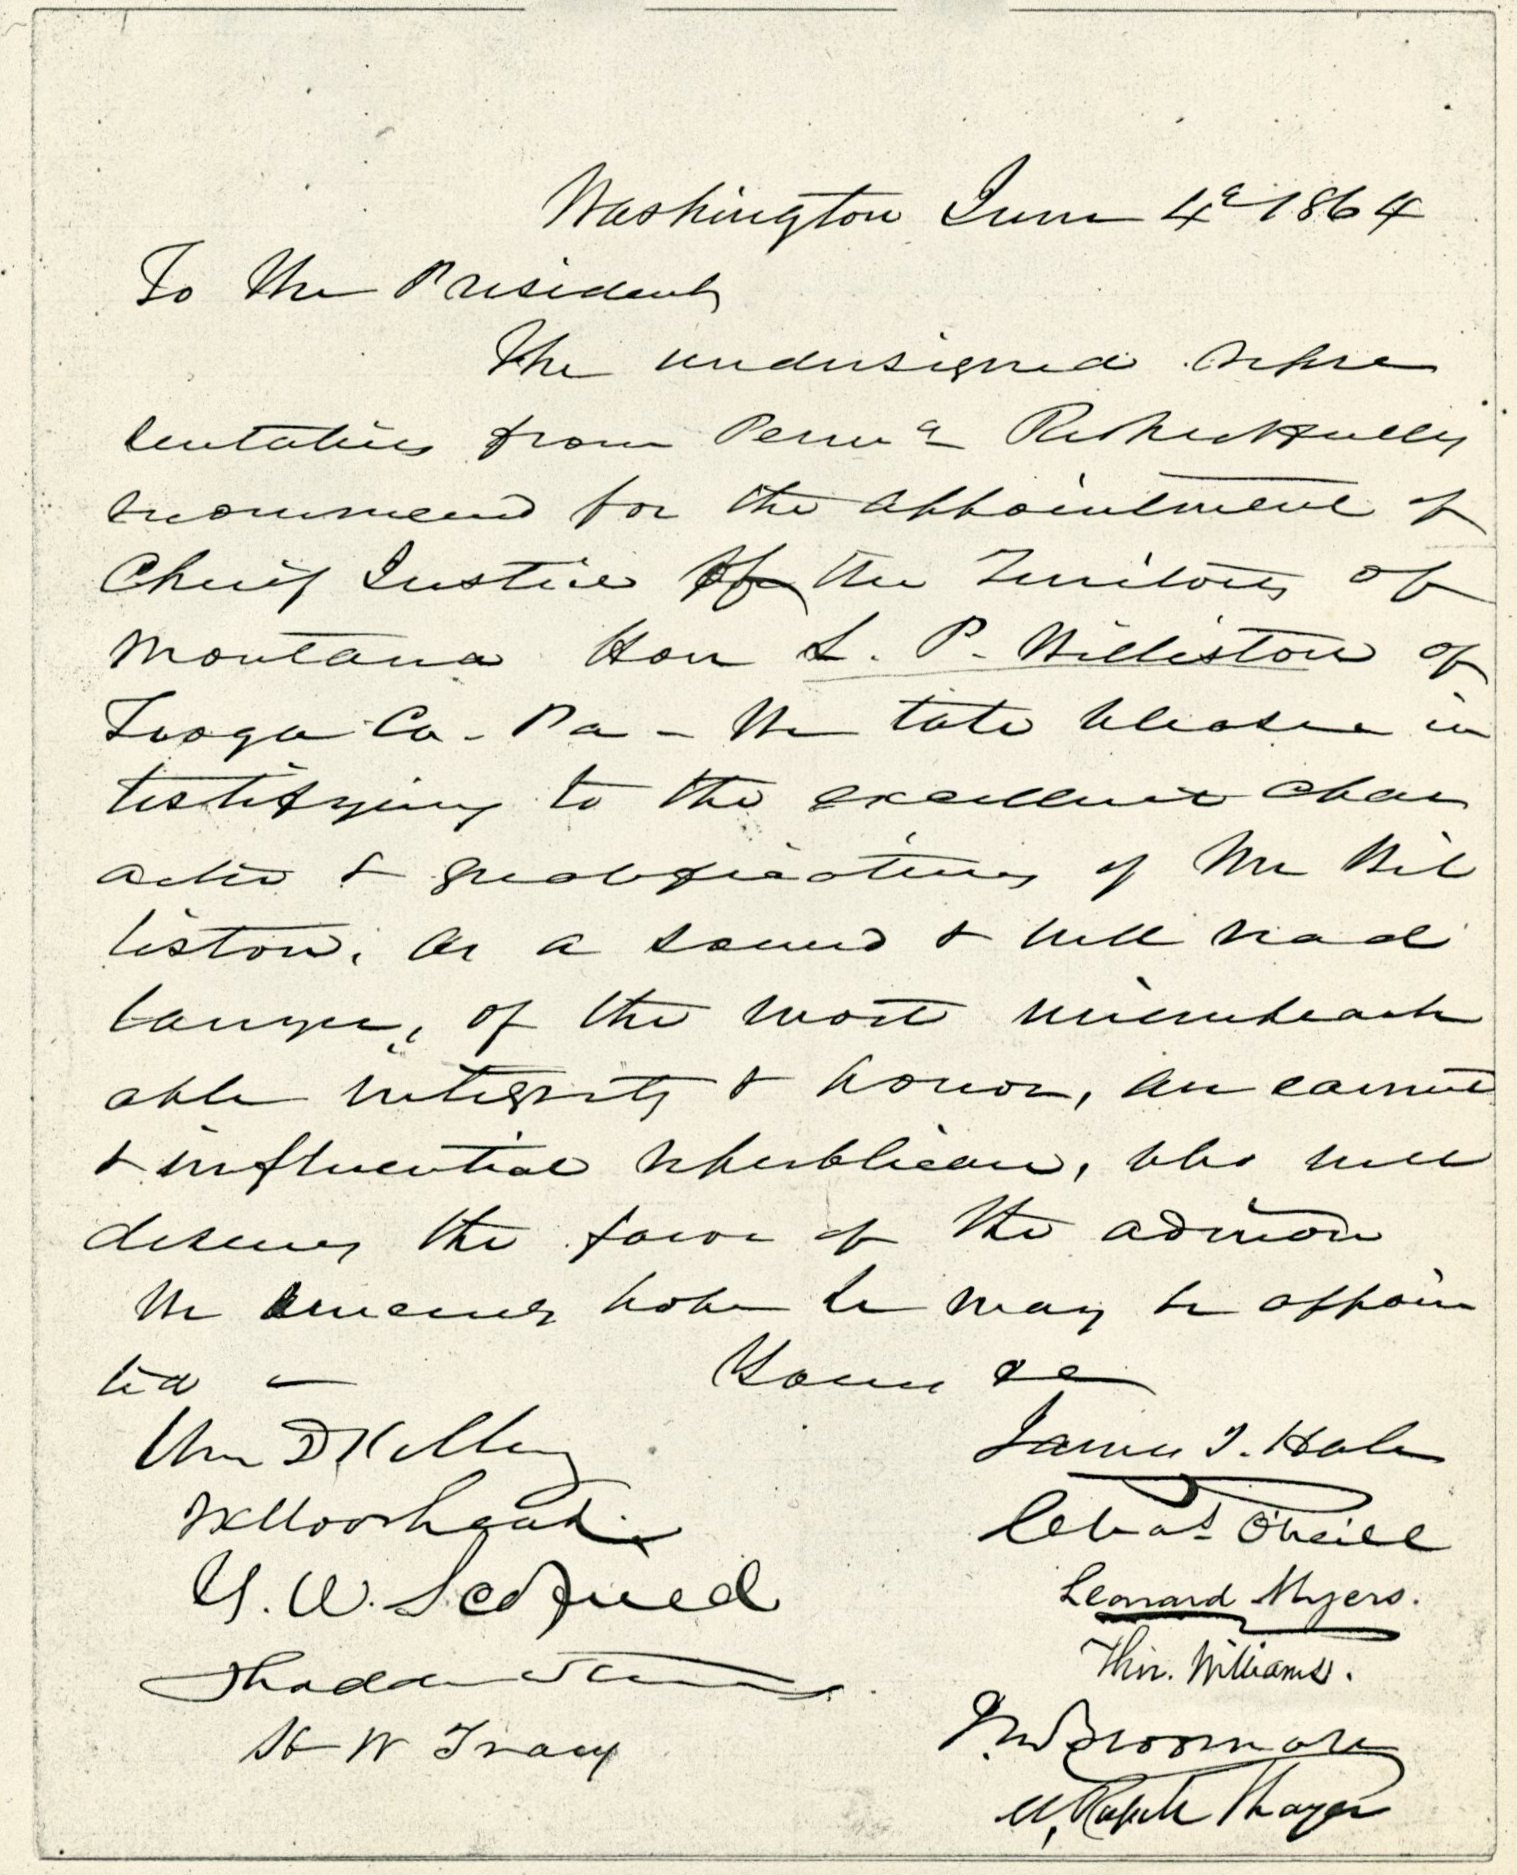 Washington June 4th 1864
To the President
The undersigned repre
sentatives from Penna Respectfully
recommend for the appointment of
Chief Justice of the Territory of
Montana Hon L. P. Williston of
Tioga Co. Pa - We take pleasure in
testifying to the excellent char
acter & qualifications of Mr Wil
liston. As a sound & well read
lawyer, of the most unimpeach
able integrity & honor, an earnest
& influential republican, who well
deserves the favor of the admon
We sincerely hope he may be appoin
ted -
Yours &c
Wm D Kelley
James T. Hale
J K Moorhead
Chas O'Neill
G. W. Scofield
Leonard Myers.
Thaddeus Stevens
Thos. Williams.
H W Tracy
J. M. Broomall
M. Russell Thayer